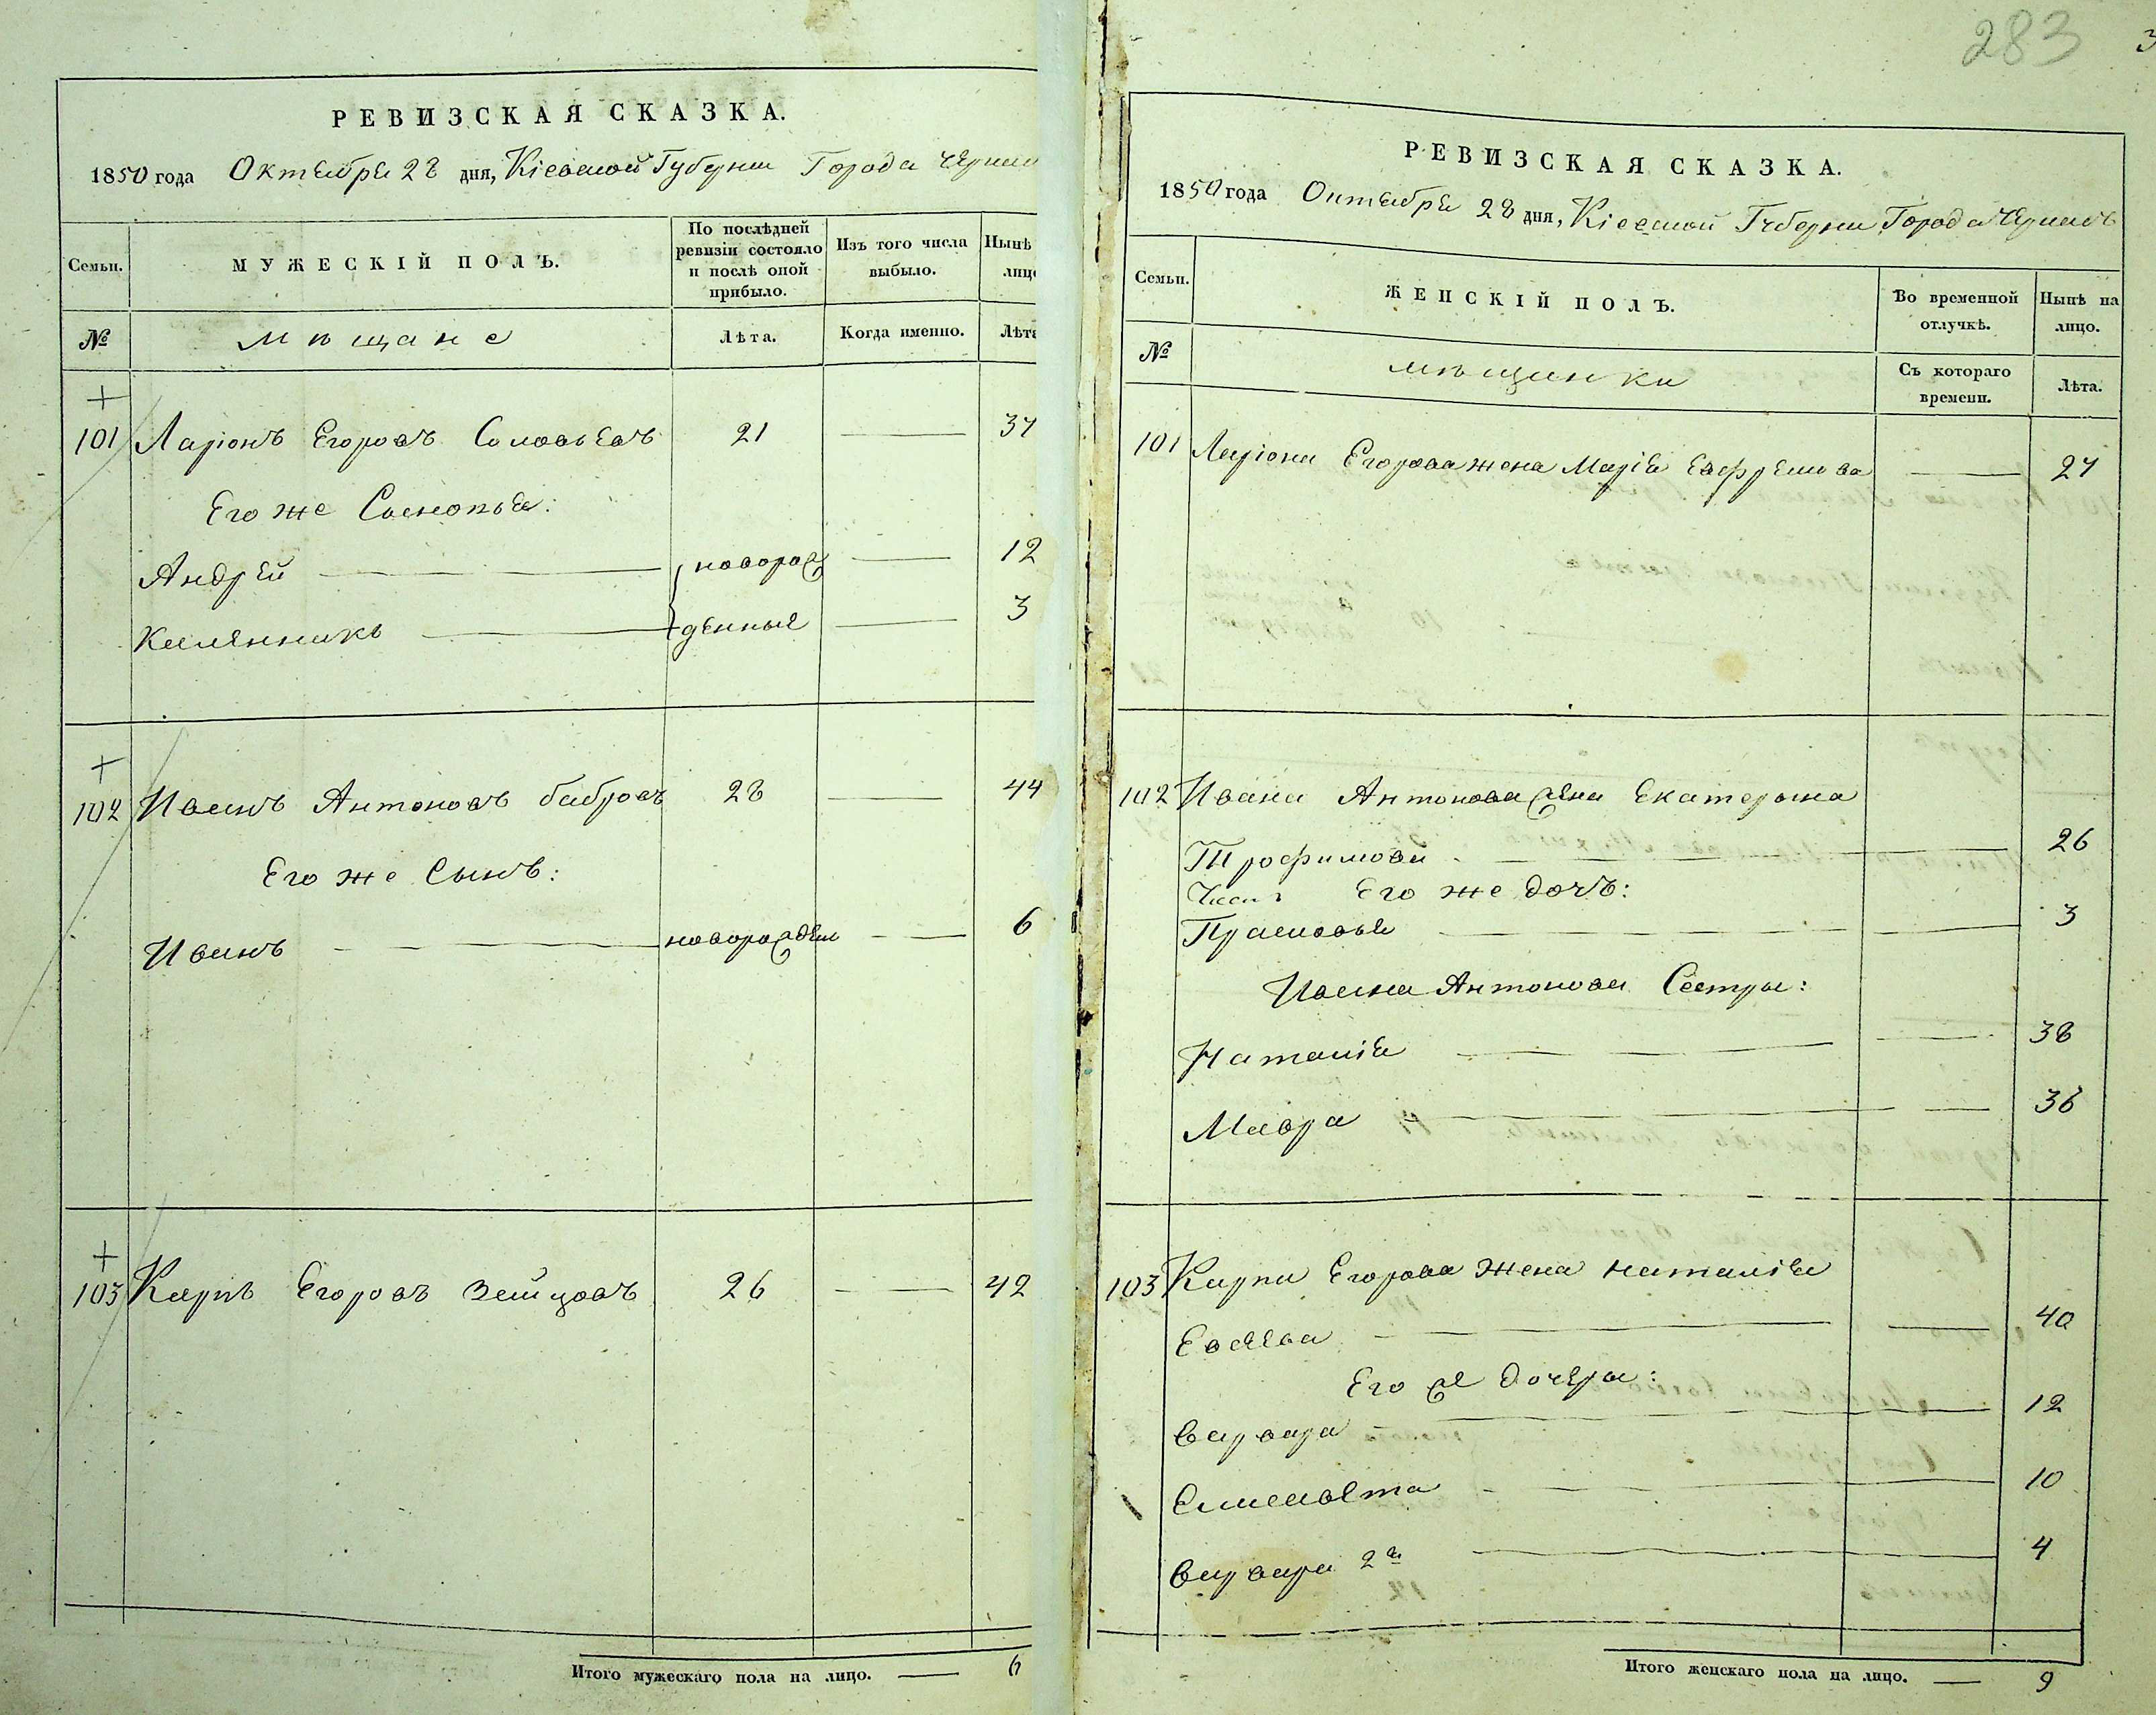 РЕВИЗСКАЯ СКАЗКА.
1850 года Октября 28 дня, Кіевской Губерніи Города Черкас
Семьи.
МУЖЕСКІЙ ПОЛЪ.
По послѣдней ревизіи состояло и послѣ оной прибыло.
Изъ того числа выбыло.
Нынѣ лицо
№
мѣщане
Лѣта.
Когда именно.
Лѣта
101 Ларіонъ Егоровъ Соловьевъ 21 37
Его же Сыновья:
Андрей новорож 12
Калинникъ денные 3
102 Иванъ Антоновъ бабровъ 28 44
Его же Сынъ:
Иванъ новорожден 6
103 Карпъ Егоровъ Зайцовъ 26 42
Итого мужескаго пола на лицо. 6
283
РЕВИЗСКАЯ СКАЗКА.
1850 года Октября 28 дня, Кіевской Губерніи Города Черкасъ
Семьи.
ЖЕНСКІЙ ПОЛЪ.
Во временной отлучкѣ.
Нынѣ на лицо.
№
мѣщанки
Съ котораго времени.
Лѣта.
101 Ларіона Егорова жена Марія Евфремова 27
102 Ивана Антонова жена Екатерина
Трофимова 26
Его же дочь:
Прасковья 3
Ивана Антонова Сестры:
Наталія 38
Мавра 36
103 Карпа Егорова жена наталія
Евсѣева 40
Его же дочери:
варвара 12
Елисавета 10
варвара 2я 4
Итого женскаго пола на лицо. 9